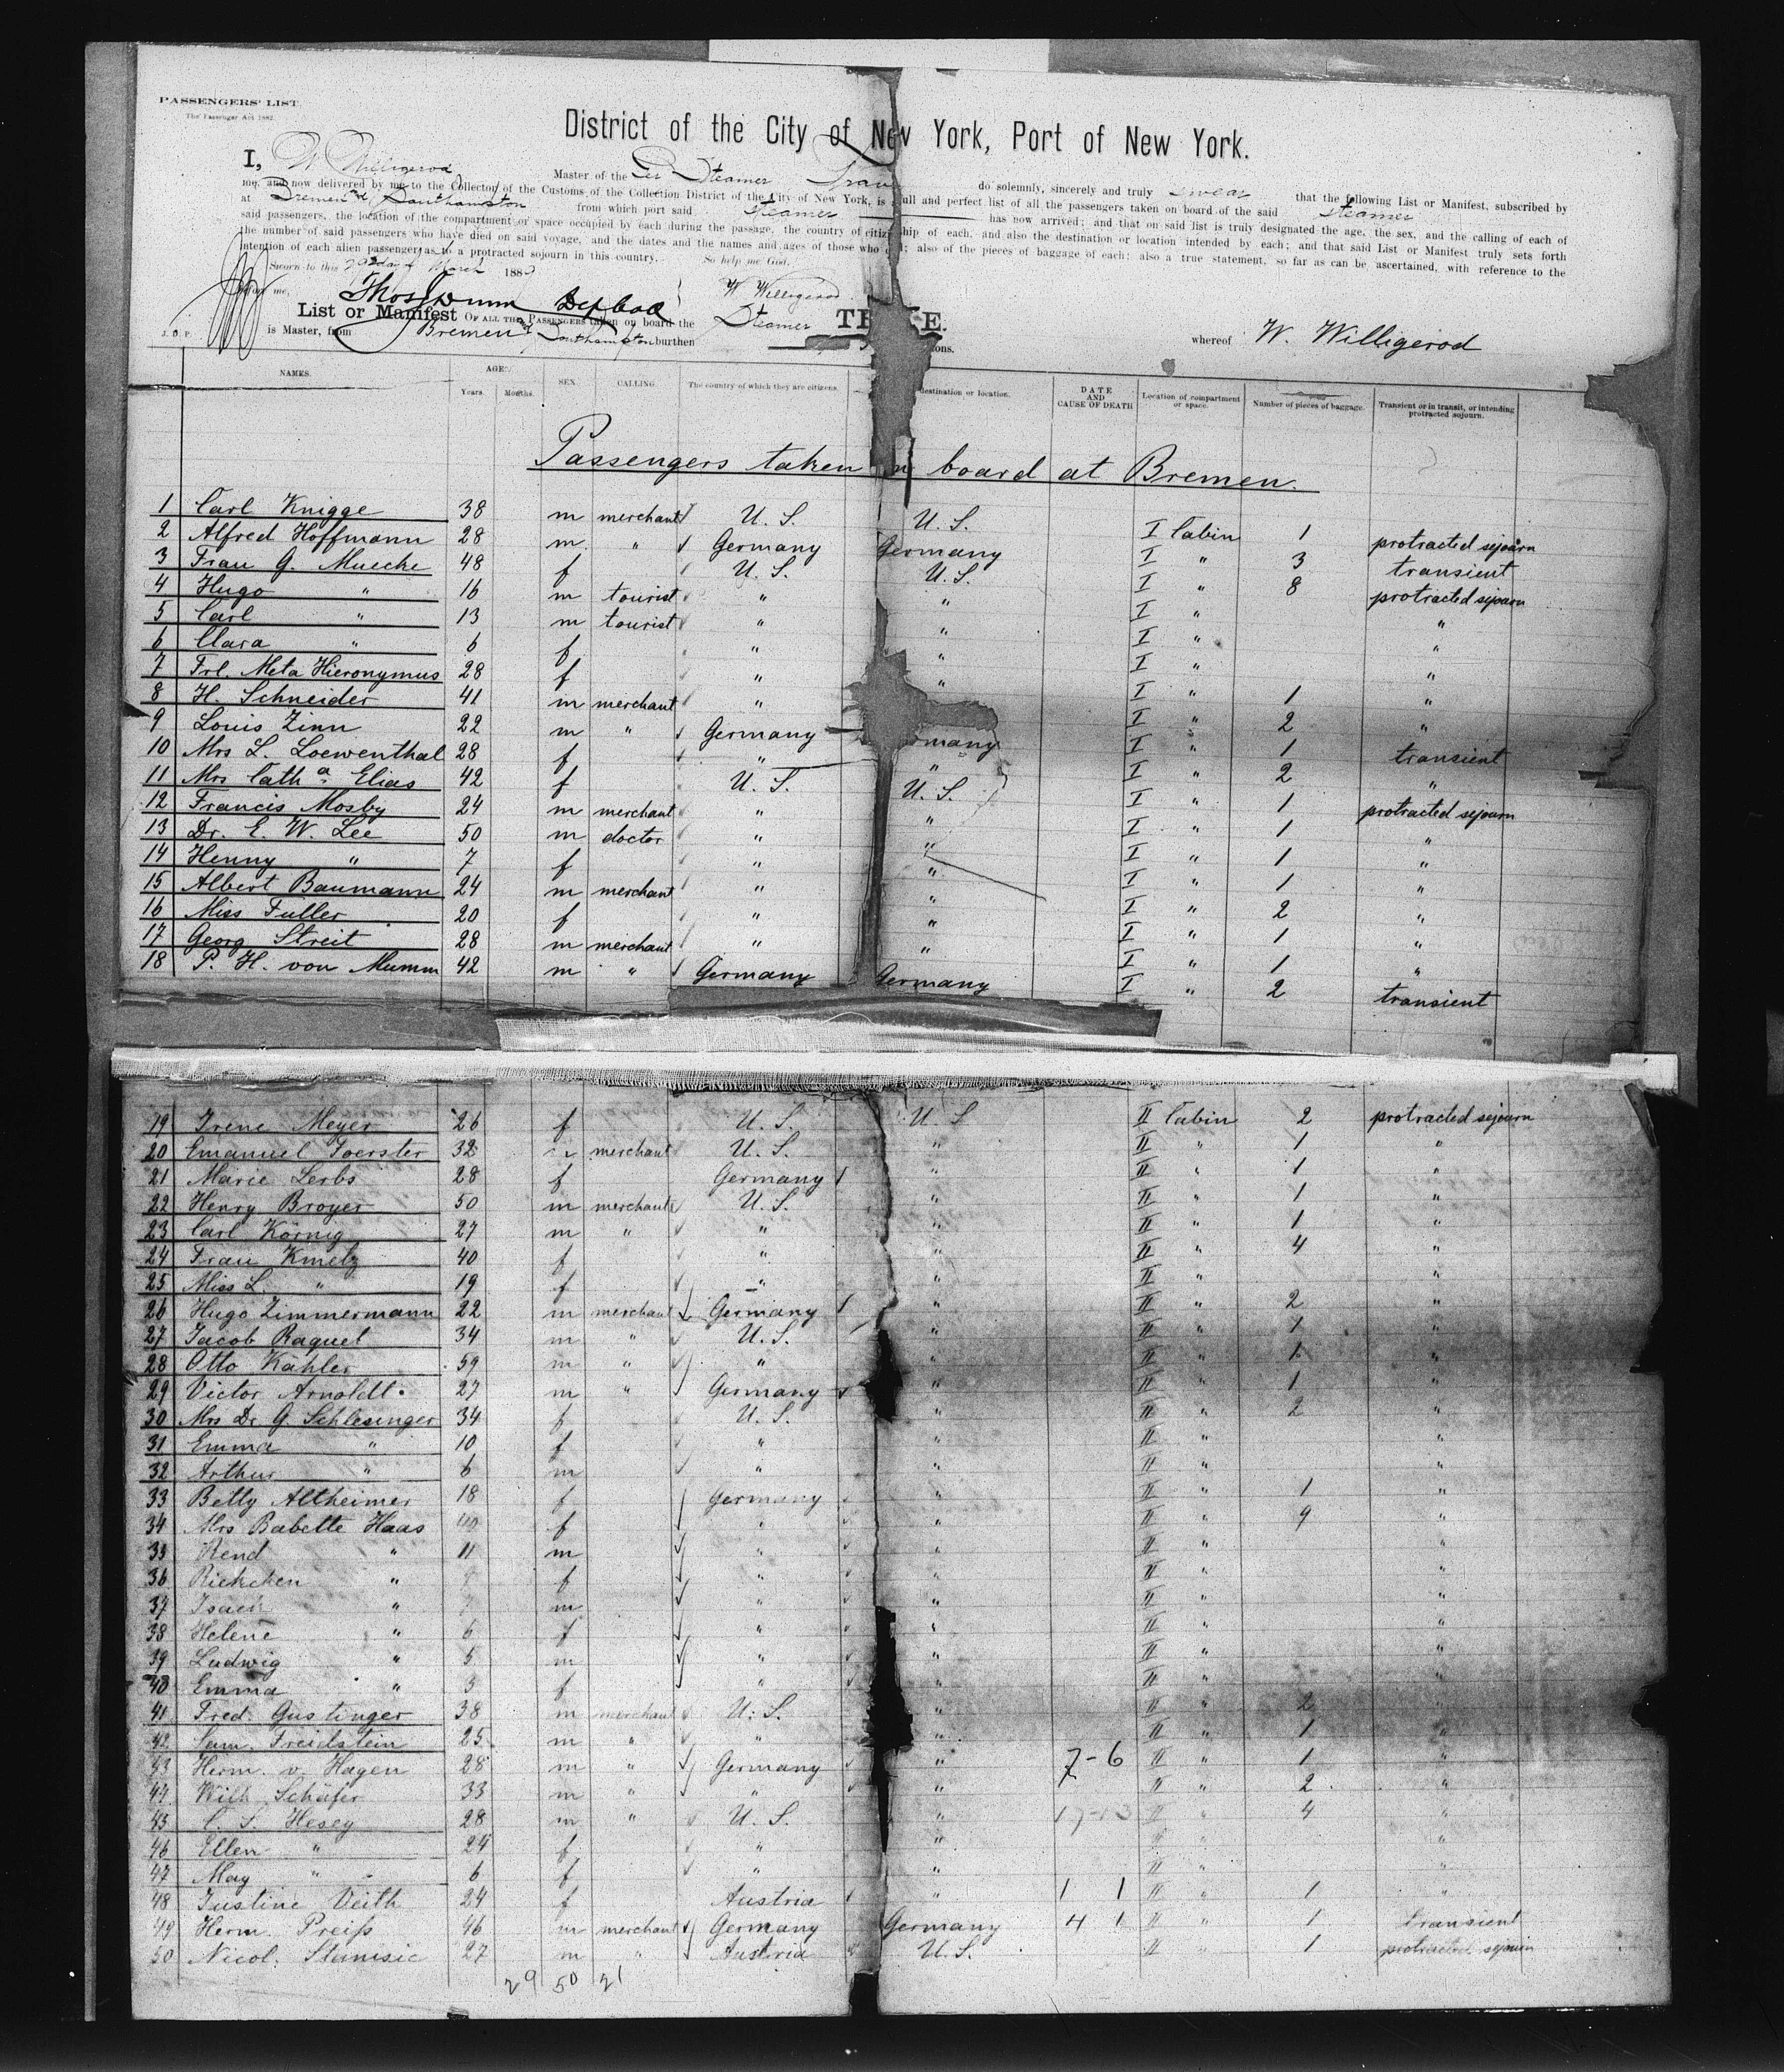 PASSENGERS' LIST.
The Passenger Act 1882.
District of the City of New York, Port of New York.
I, W Willigerod Master of the Steamer do solemnly, sincerely and truly swear that the following List or Manifest, subscribed by
me, and now delivered by me to the Collector of the Customs of the Collection District of the City of New York, is a full and perfect list of all the passengers taken on board of the said Steamer
at Bremen and Southampton from which port said Steamer has now arrived; and that on said list is truly designated the age, the sex, and the calling of each of
said passengers, the location of the compartment or space occupied by each during the passage, the country of citizenship of each, and also the destination or location intended by each; and that said List or Manifest truly sets forth
the number of said passengers who have died on said voyage, and the dates and the names and ages of those who died; also of the pieces of baggage of each; also a true statement, so far as can be ascertained, with reference to the
intention of each alien passenger as to a protracted sojourn in this country. So help me God.
Sworn to this day of March 188
me, W Willigerod
List or Manifest OF ALL THE PASSENGERS taken on board the Steamer
J. O. P. is Master, from Bremen and Southampton burthen tons. whereof W. Willigerod
NAMES. AGE. Years. Months. SEX. CALLING. The country of which they are citizens. destination or location. DATE AND CAUSE OF DEATH Location of compartment or space. Number of pieces of baggage. Transient or in transit, or intending protracted sojourn.
Passengers taken on board at Bremen.
1 Carl Knigge 38 m merchant U. S. U. S. I Cabin 1 protracted sejourn
2 Alfred Hoffmann 28 m " Germany Germany I " 3 transient
3 Frau G. Muecke 48 f U. S. U. S. I " 8 protracted sejourn
4 Hugo " 16 m tourist " " I " "
5 Carl " 13 m tourist " " I " "
6 Clara " 6 f " " I " "
7 Frl. Meta Hieronymus 28 f " " I " 1 "
8 H. Schneider 41 m merchant " I " 2 "
9 Louis Zinn 22 m " Germany many I " 1 transient
10 Mrs L. Loewenthal 28 f " " I " 2 "
11 Mrs Cath a Elias 42 f U. S. U. S. I " 1 protracted sejourn
12 Francis Mosby 24 m merchant " " I " 1 "
13 Dr. E. W. Lee 50 m doctor " " I " 1 "
14 Henny " 7 f " " I " 1 "
15 Albert Baumann 24 m merchant " " I " 2 "
16 Miss Fuller 20 f " " I " 1 "
17 Georg Streit 28 m merchant " " I " 1 "
18 P. H. von Mumm 42 m " Germany Germany I " 2 transient
19 Irene Meyer 26 f U. S. U. S II Cabin 2 protracted sejourn
20 Emanuel Foerster 32 merchant U. S. " II " 1 "
21 Marie Lerbs 28 f Germany " II " 1 "
22 Henry Broyer 50 m merchant U. S. " II " 1 "
23 Carl Körnig 27 m " " " II " 1 "
24 Frau Kmelz 40 f " " II " 4 "
25 Miss L. " 19 f " " II " "
26 Hugo Zimmermann 22 m merchant Germany " II " 2 "
27 Jacob Raquet 34 m " U. S. " II " 1 "
28 Otto Kähler 59 m " " " II " 1 "
29 Victor Arnoldt 27 m " Germany " II " 1 "
30 Mrs Dr G. Schlesinger 34 f U. S. " II " 2 "
31 Emma " 10 f " " II " "
32 Arthur " 6 m " " II " "
33 Betty Altheimer 18 f Germany " II " 1 "
34 Mrs Babette Haas 40 f " " II " 9 "
35 " 11 m " " II " "
36 Riekchen " f " " II " "
37 " m " " II " "
38 Helene " 6 f " " II " "
39 Ludwig " 5 m " " II " "
40 Emma " 3 f " " II " "
41 Fred. Gustinger 38 m merchant U. S. " II " 2 "
42 Sam. Freidstein 25 m " " " II " 1 "
43 Herm. v. Hagen 28 m " Germany " 7-6 II " 1 "
44 Wilh. Schäfer 33 m " " " II " 2 "
45 C. S. Hesey 28 m " U. S. " II " 4 "
46 Ellen " 24 f " " II " "
47 May " 6 f " " II " "
48 Justine Veith 24 f Austria " 1 1 II " 1 "
49 Herm. Preiß 46 m merchant Germany Germany 4 1 II " 1 transient
50 Nicol. Stanisic 27 m " Austria U. S. II " 1 protracted sejourn
29 50 21